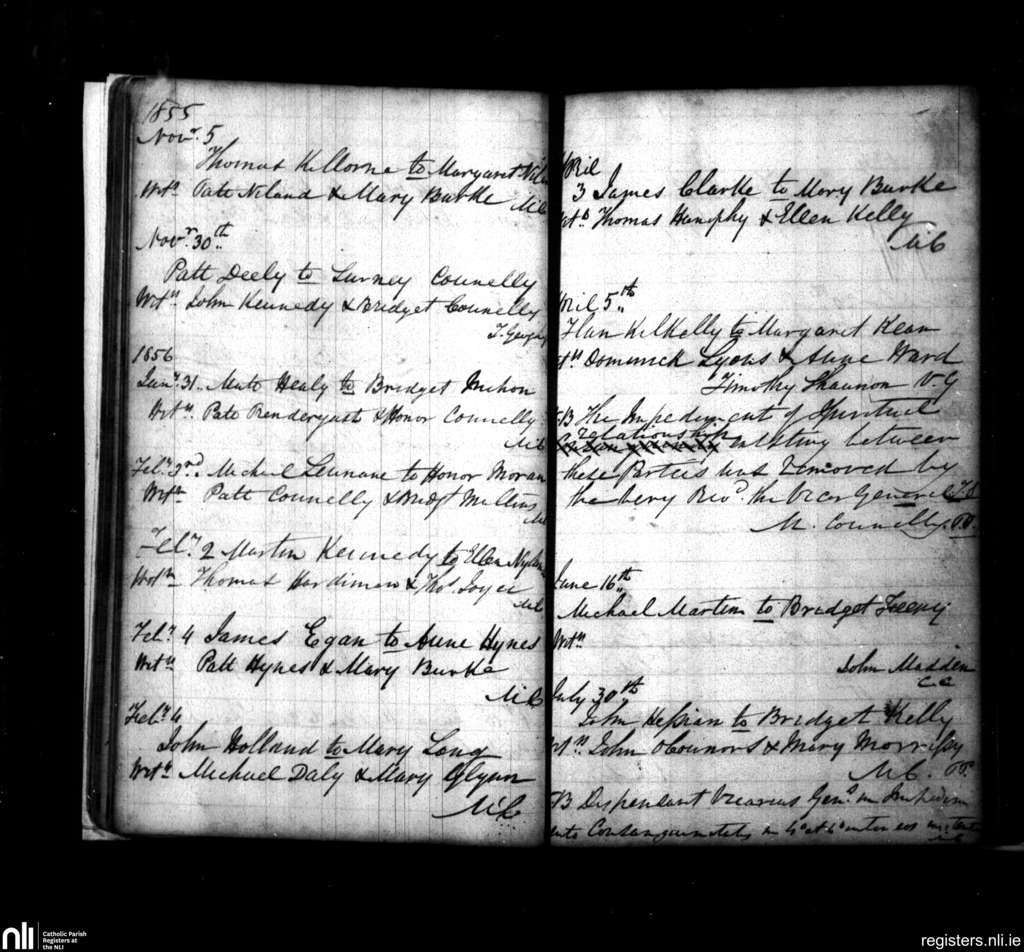 1855
Novr. 5
Thomas Killorne to Margaret
Wits Patt Niland & Mary Burke M.C
Novr. 30th
Patt Deely to Surney Connelly
Witss John Kennedy & Bridget Connelly
1856
Jany. 31. Matt Healy to Bridget
Witss Patt Prendergast & Honor Connelly
M.C
Feby. 3rd. Michael Lennane to Honor Moran
Witss Patt Connelly & Bridgt Mullins
Feby. 2 Martin Kennedy to Ellen
Witss Thomas Hardiman & Thos. Joyce
M.C
Feby. 4 James Egan to Anne Hynes
Witss Patt Hynes & Mary Burke
M.C
Feby. 4
John Holland to Mary Long
Witss Michael Daly & Mary Glynn
M.C
ril
3 James Clarke to Mary Burke
Thomas Hanphy & Ellen Kelly
M.C
ril 5th
Kilkelly to Margaret Kean
Dominick Lyons & Anne Ward
Timothy Shannon V.G
B The Impediment of Spiritual
relationship existing between
these Parties was removed by
the Very Revd. the Vicar General
M. Connelly. PP.
June 16th
Michael Martin to Bridget Feeney
Witss
John Madden
C.C
July 30th
John Hessian to Bridget Kelly
John OConnors & Mary Morrissy
M.C. PP.
B Dispensant Vicarius Genl. in Impedim
ento Consanguinitatis in 4o at 4o inter eos
nli
Catholic Parish
Registers at
the NLI
registers.nli.ie